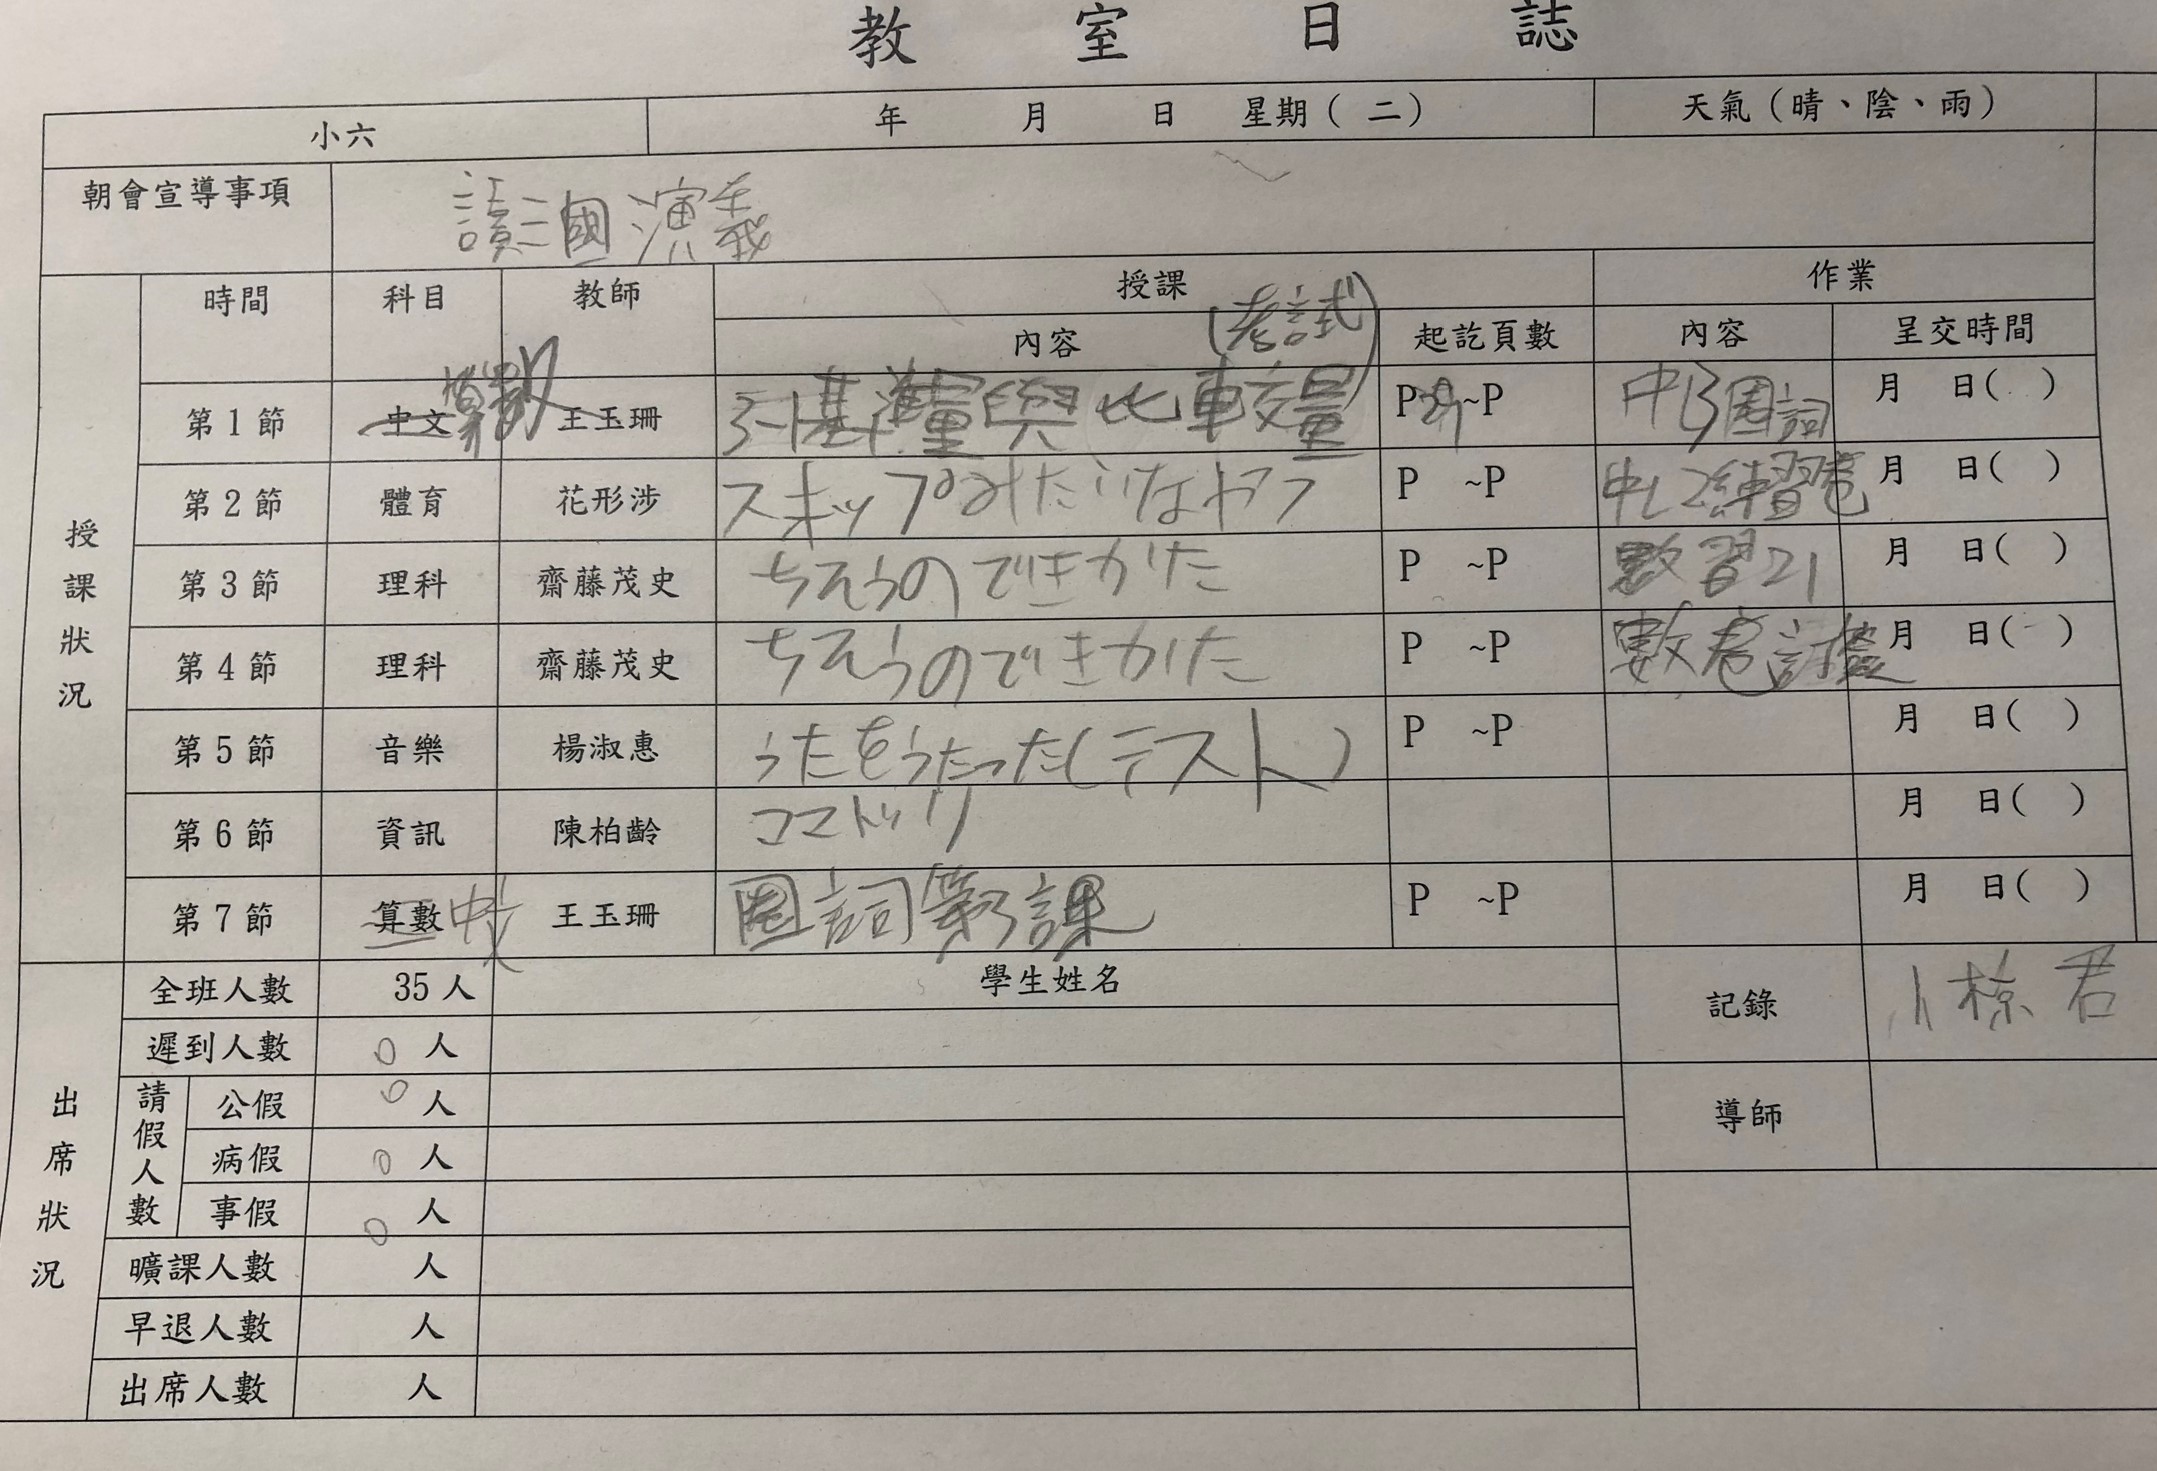 教室日誌
小六 年 月 日 星期（二） 天氣（晴、陰、雨）
朝會宣導事項 讀三國演義
授課狀況
時間 科目 教師 授課 作業
內容 (考試) 起訖頁數 內容 呈交時間
第1節 中文 算數 王玉珊 3-1基準量與比較量 P ~P 中3圈詞 月 日( )
第2節 體育 花形涉 スキップみたいな P ~P 中L2練習卷 月 日( )
第3節 理科 齋藤茂史 ちそうのできかた P ~P 數習21 月 日( )
第4節 理科 齋藤茂史 ちそうのできかた P ~P 數卷訂 月 日( )
第5節 音樂 楊淑惠 うたをうたった(テスト) P ~P 月 日( )
第6節 資訊 陳柏齡 月 日( )
第7節 算數 中文 王玉珊 圈詞第3課 P ~P 月 日( )
出席狀況
全班人數 35人 學生姓名 記錄 君
遲到人數 0人
請假人數
公假 0人 導師
病假 0人
事假 0人
曠課人數 人
早退人數 人
出席人數 人